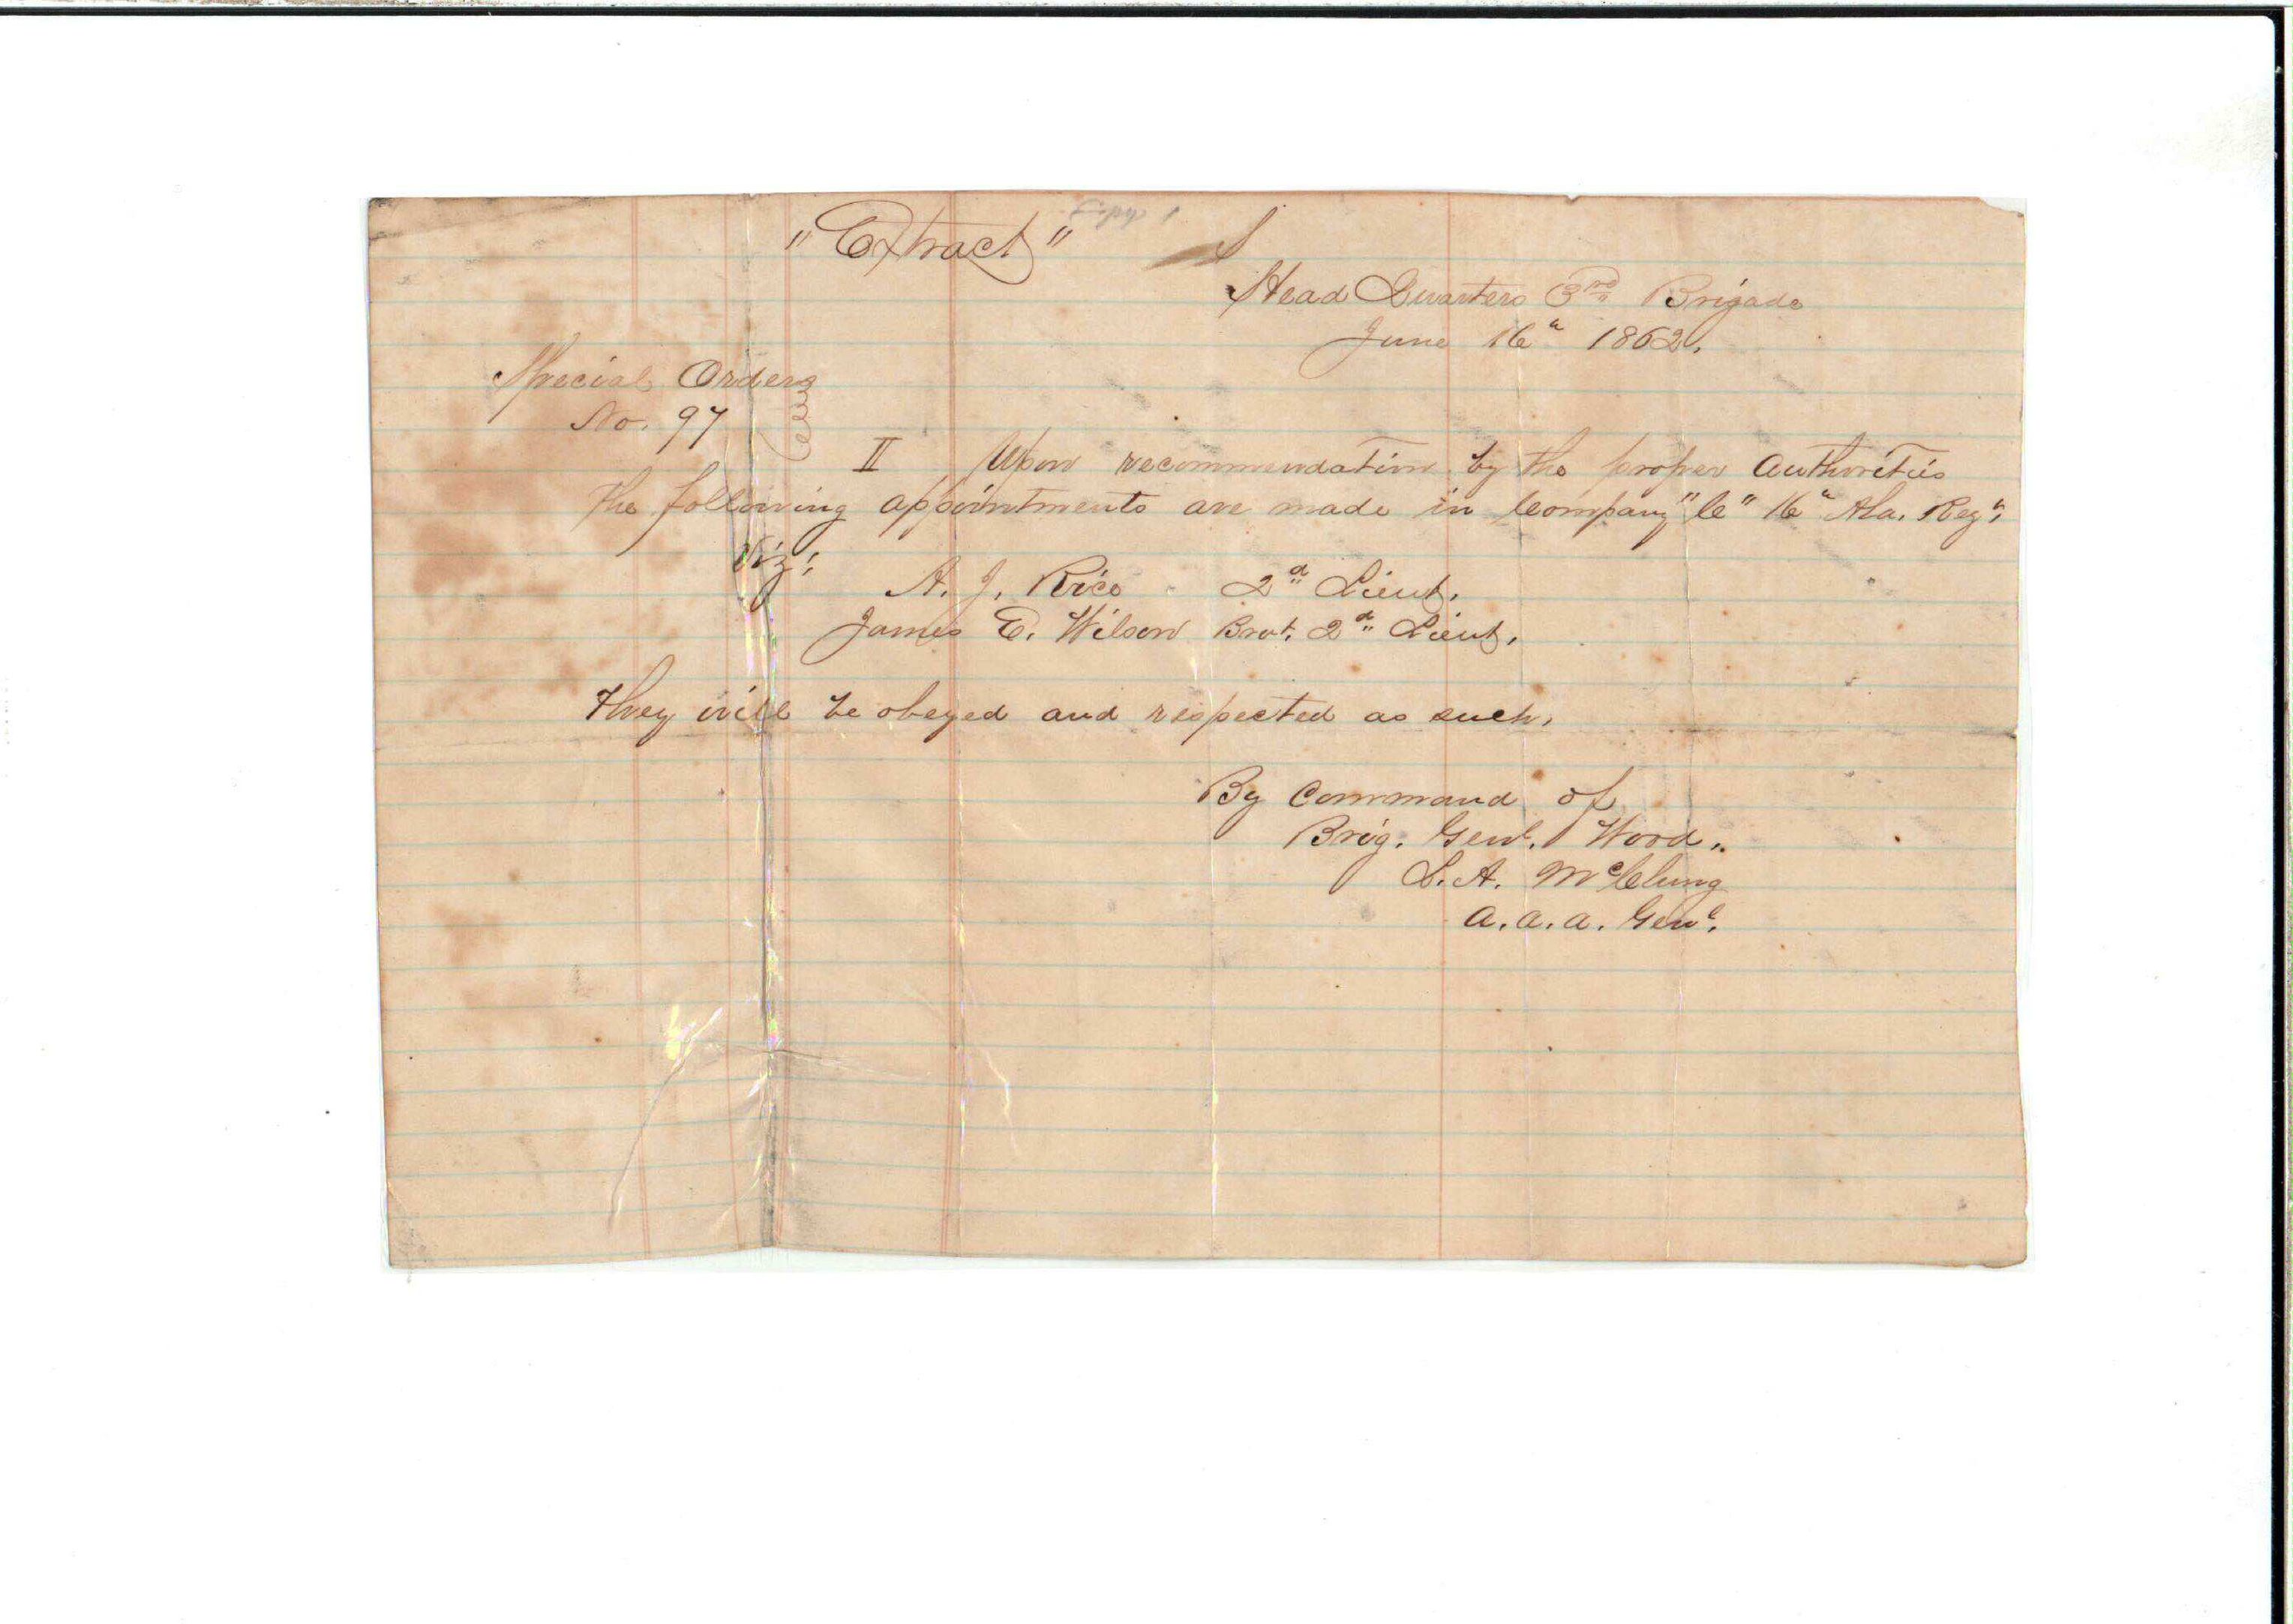 "Extract"
Head Quarters 3rd Brigade
June 16" 1862.
Special Orders
No. 97
II Upon recommendation by the proper Authorities
the following appointments are made in Company "C" 16" Ala. Reg",
Viz:
A. J. Rice 2d Lieut.
James E. Wilson Brvt. 2d Lieut.
They will be obeyed and respected as such.
By Command of
Brig. Genl. Wood.
L. A. McClung
A. A. A. Genl.